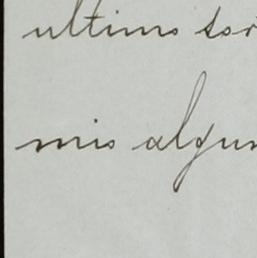 ultimo sor
mis algun